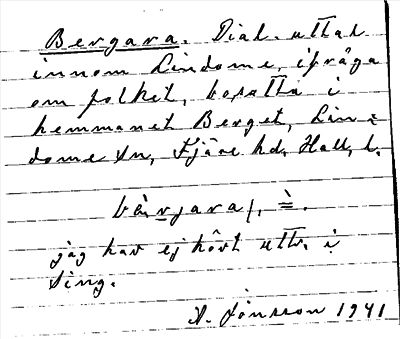 Bergara. Dial. uttal
innom Lindome, ifråga
om folket, bosatta i
hemmanet Berget, Lin-
dome sn, Fjäre hd, Hall. l.
bàrjara/, =̀.
jag har ej hört uttr. i
Sing.
A. Jonsson 1941